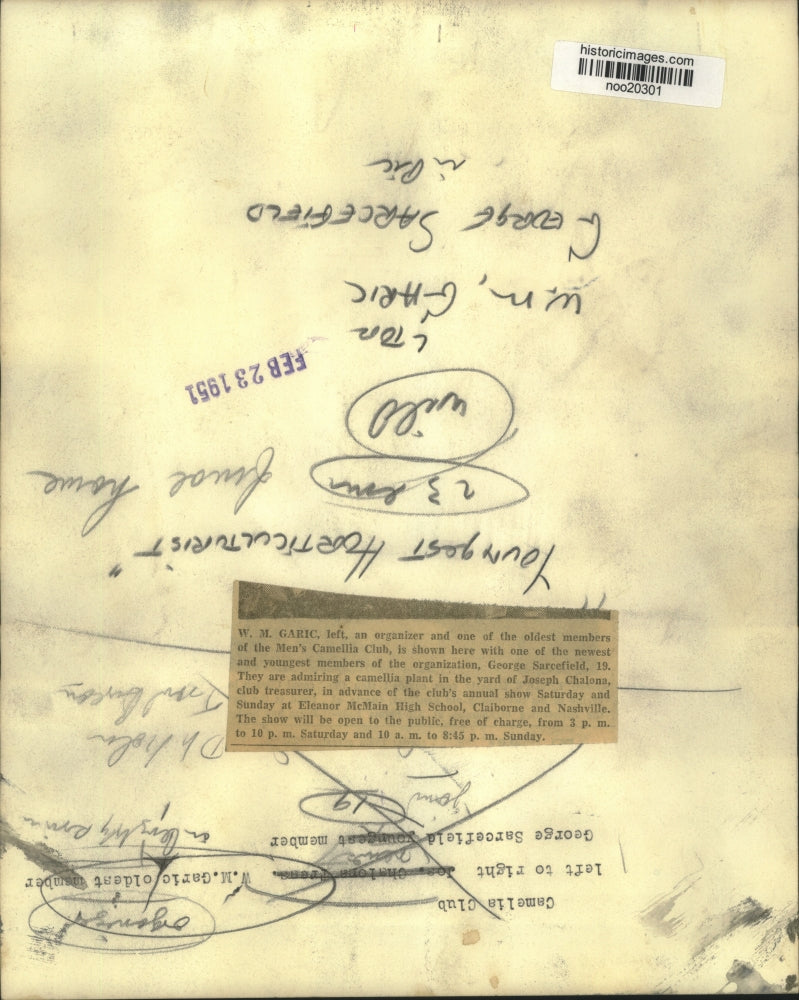 historicimages.com
noo20301
W. M. GARIC, left, an organizer and one of the oldest members
of the Men's Camellia Club, is shown here with one of the newest
and youngest members of the organization, George Sarcefield, 19.
They are admiring a camellia plant in the yard of Joseph Chalona,
club treasurer, in advance of the club's annual show Saturday and
Sunday at Eleanor McMain High School, Claiborne and Nashville.
The show will be open to the public, free of charge, from 3 p. m.
to 10 p. m. Saturday and 10 a. m. to 8:45 p. m. Sunday.
Camelia Club
left to right Jos. Chalona Treas. W.M.Garic oldest member
George Sarcefield youngest member
19
"YOUNGEST HORTICULTURIST"
23 home
will
FEB 23 1951
L TO R
W. M. GARIC
GEORGE SARCEFIELD
in Pic